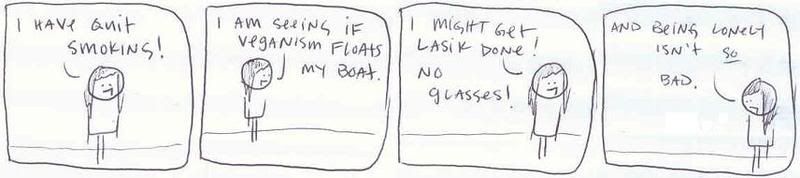 I HAVE QUIT
SMOKING!
I AM SEEING IF
VEGANISM FLOATS
MY BOAT.
I MIGHT GET
LASIK DONE!
NO
GLASSES!
AND BEING LONELY
ISN'T SO
BAD.